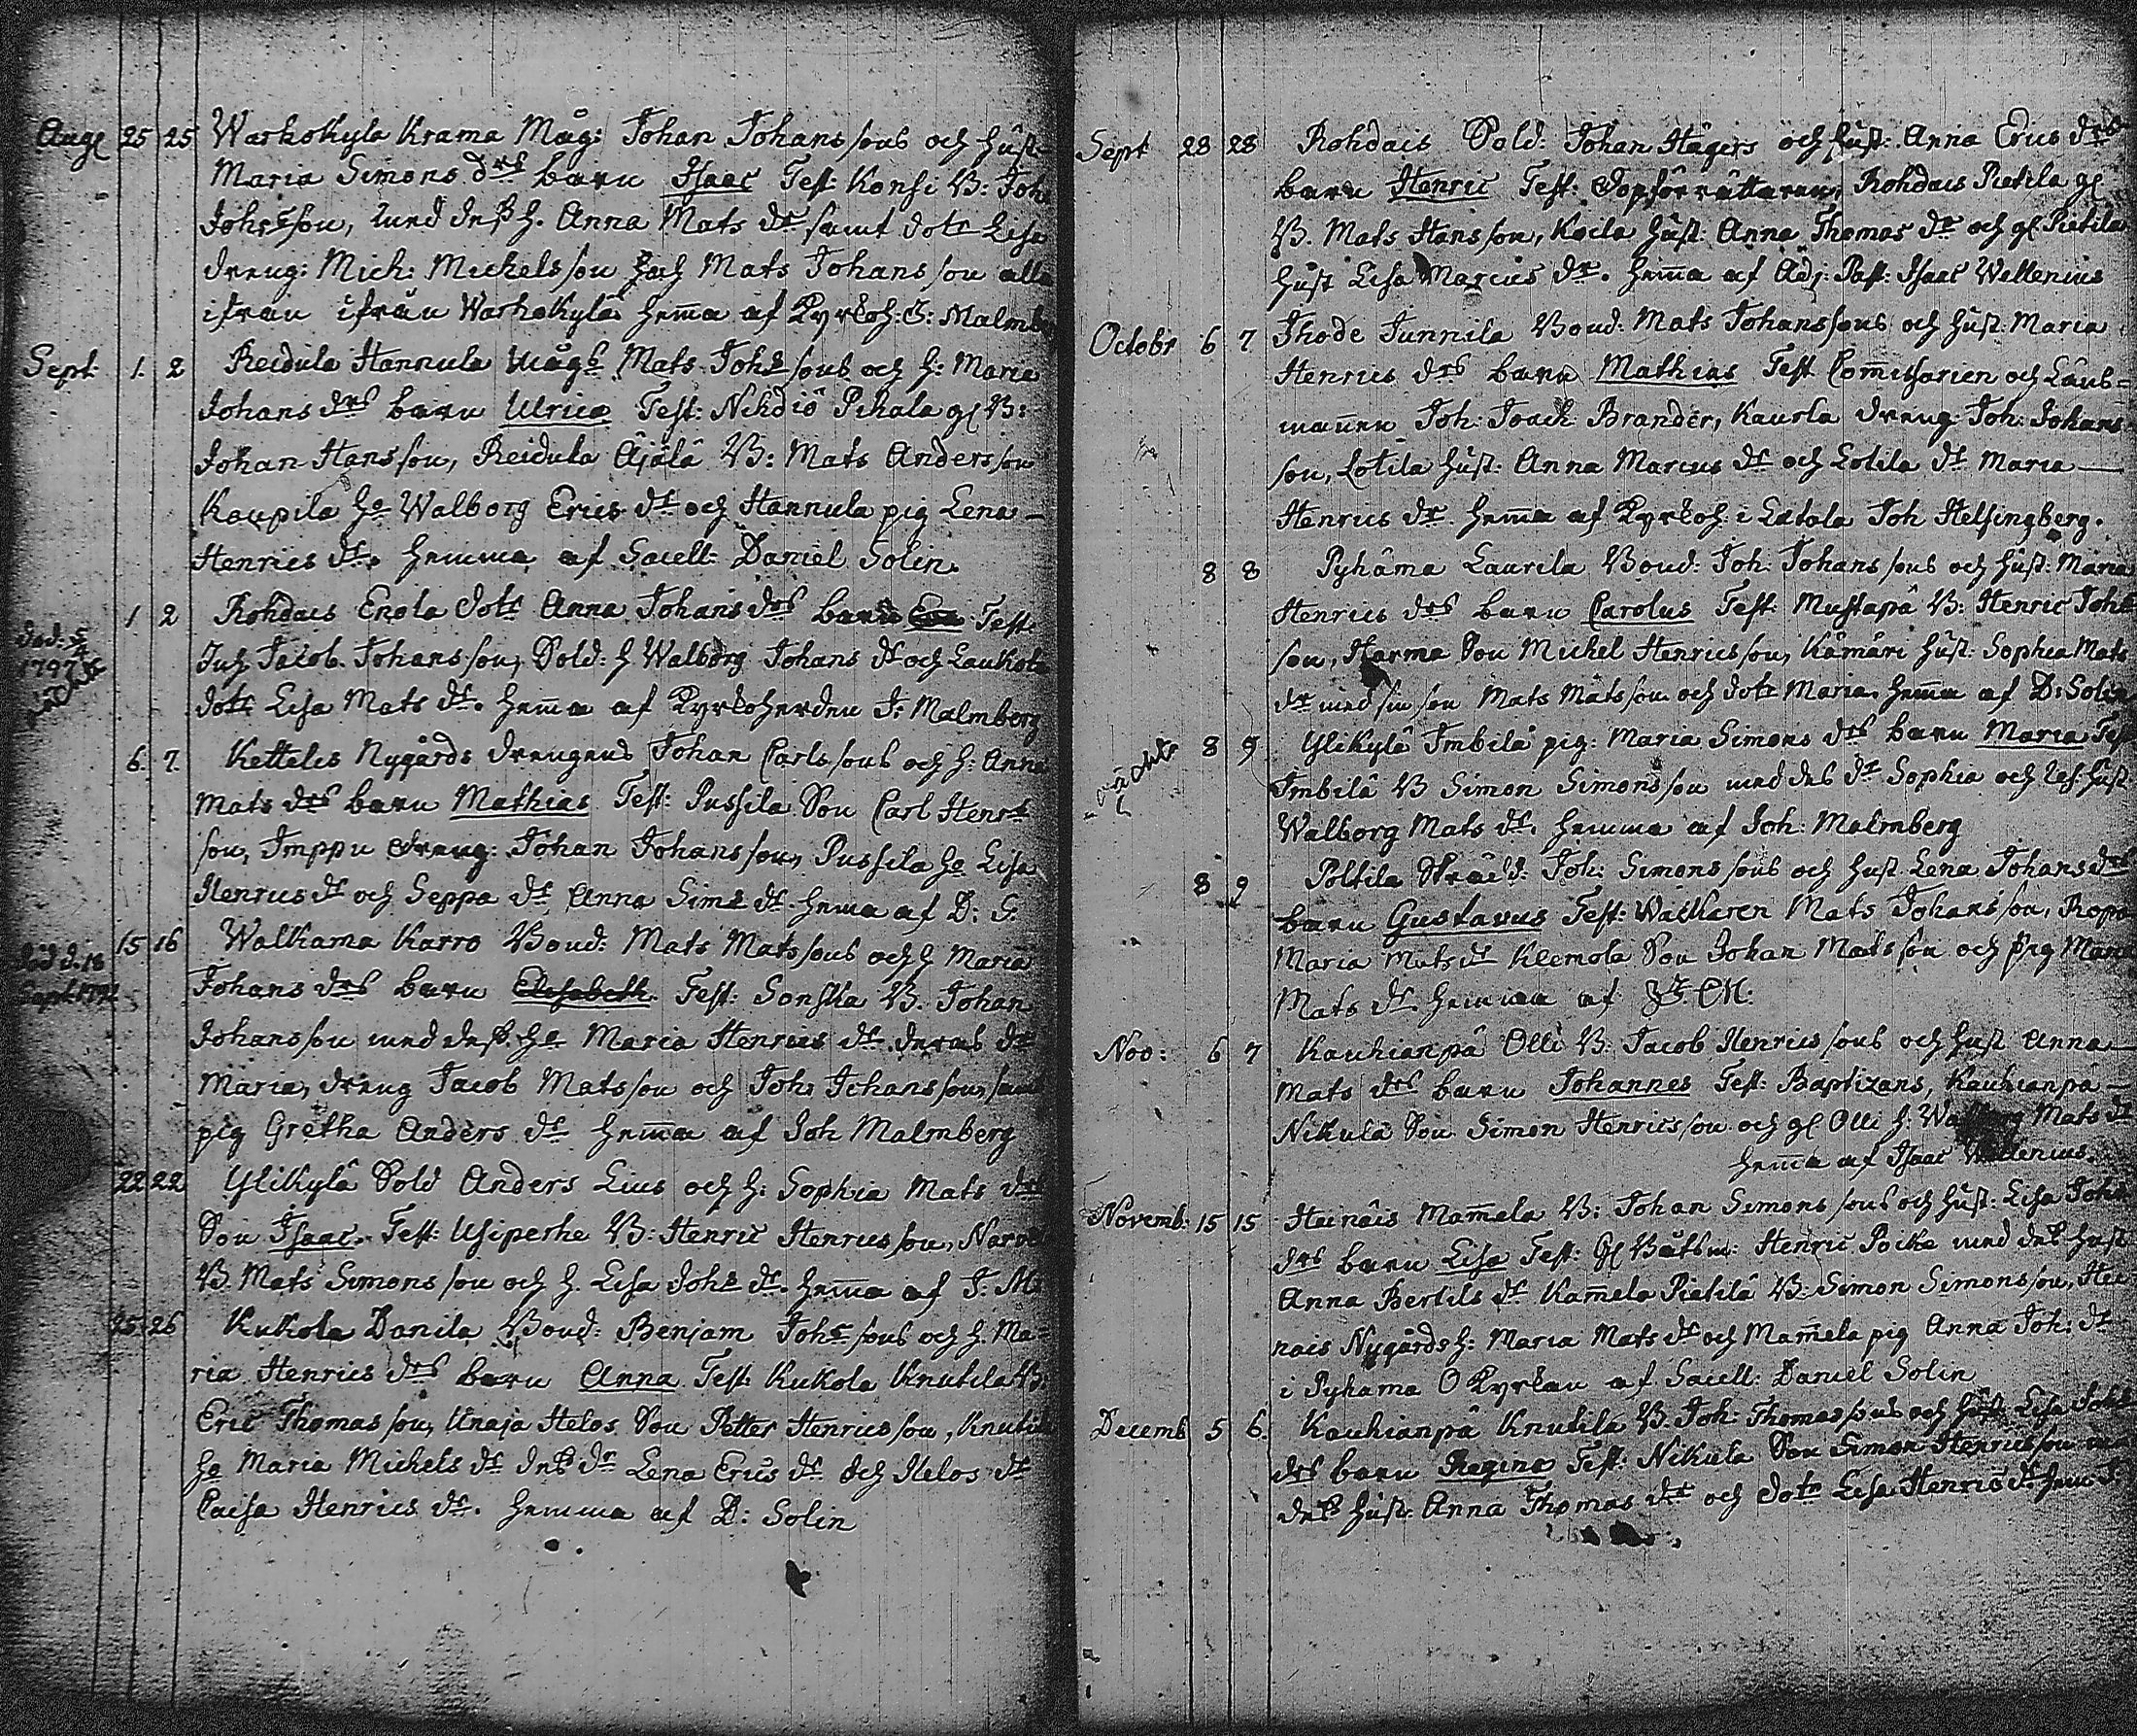 Aug 25 25 Warhokyla Krama Måg: Johan Johanssons och Hust:
Maria Simons drs barn Isaac Test: Konsi B: Joh
Johs son, med dess h. Anna Mats dr samt dotr Lisa
dreng: Mich: Michelsson och Mats Johansson alla
ifrån ifrån Warhokylä hema af Kyrkoh: J: Malmb
Sept 1. 2 Reidula Hannula mågs Mats Johssons och h: Maria
Johans drs barn Ulrica Test: Nihdiö Pihala gl B:
Johan Hansson, Reidula Äjälä B: Mats Andersson
Kaupila ho Walborg Erics dr och Hannula pig Lena
Henrics dr. hemma af Sacell: Daniel Solin.
1 2 Rohdais Enola dotr Anna Johans drs barn Eva Test:
död: 5/4
1797
Juh Jacob Johansson, Sold: h Walborg Johans dr och Laukola
dotr Lisa Mats dr. hema af Kyrkoherden J: Malmberg
6. 7. Ketteles Nygårds drengens Johan Carlssons och h: Anna
Mats drs barn Mathias Test: Pussila Son Carl Henrs
son, Imppu dreng: Johan Johansson, Pussila ho Lisa
Henrics dr och Seppa dr Anna Sims dr hema af D: S.
15 16 Walkama Karro Bond: Mats Matssons och h Maria
död d. 18
Sept. 1792
Johans drs barn Elisabeth Test: Sonska B. Johan
Johansson med dess ho Maria Henrics dr deras dr
Maria, dreng Jacob Matsson och Johs Johansson, samt
pig Gretha Anders dr hema af Joh Malmberg
22 22 Ylikylä Sold Anders Lius och h: Sophia Mats drs
Son Isaac. Test: Usiperhe B: Henric Henricsson, Narv
B. Mats Simonsson och h. Lisa Johs dr. hema af J. M:
25 26 Kukola Danila Bond: Benjam Johssons och h. Ma=
ria Henrics drs barn Anna Test: Kukola Knutila B:
Eric Thomasson, Unaja Helos Son Petter Henricsson, Knutil
ho Maria Michels dr dess dr Lena Erics dr och Helos dr
Caisa Henrics dr. hemma af D: Solin
Sept 28 28 Rohdais Sold: Johan Hägers och Hust: Anna Erics drs
barn Henric Test: Dopförrättaren, Rohdais Pietila gl
B. Mats Hansson, Koila Hust: Anna Thomas dr och gl Pietila
Hust Lisa Marcus dr. hema af Adj: Past: Isaac Wellenius
Octobr 6 7 Ihode Junnila Bond: Mats Johanssons och Hust: Maria
Henrics drs barn Mathias Test Comissarien och Läns=
mannen Joh: Joach Brander, Kaurla dreng: Joh: Johans=
son, Lotila Hust: Anna Marcus dr och Lotila dr Maria
Henrics dr. hema af Kyrkoh: i Letala Joh Helsingberg.
8 8 Pyhäma Laurila Bond: Joh: Johanssons och Hust: Maria
Henrics drs barn Carolus Test: Mustapä B: Henric Johs
son, Harma Son Michel Henricsson, Kämäri Hust: Sophia Mats
dr med sin son Mats Matsson och dotr Maria. hema af D: Solin
8 9 Ylikylä Imbilä pig: Maria Simons drs barn Maria Test
Imbilä B Simon Simonsson med des dr Sophia och Hust
Walborg Mats dr. hemma af Joh: Malmberg
8 9 Poltila Skrädd: Joh: Simonssons och Hust. Lena Johans drs
barn Gustavus Test: Watkaren Mats Johansson, Ropo
Maria Mats dr Klemola Son Johan Matsson och pig Maria
Mats dr. hemma af
Nov: 6 7 Kauhianpä Olli B: Jacob Henricssons och Hust Anna
Mats drs barn Johannes Test: Baptizans, Kauhianpä
Nikula Son Simon Henricsson och gl Olli h: Walborg Mats dr
hema af Isaac Wellenius.
Novemb: 15 15 Heinäis Mamela B: Johan Simonssons och Hust: Lisa Johs
drs barn Lisa Test: Gl Båtsm: Henric Poike med dess Hust
Anna Bertils dr Kamela Pietilä B: Simon Simonsson, Hei
nais Nygårds h: Maria Mats dr och Mamela pig Anna Joh: dr
i Pyhama O Kyrkan af Sacell: Daniel Solin
Decemb 5 6. Kauhianpä Knutila B. Joh: Thomassons och Hust Lisa Johs
drs barn Regina Test: Nikula Son Simon Henricsson
dess Hust: Anna Thomas dr och dotr Lisa Henrics dr hem